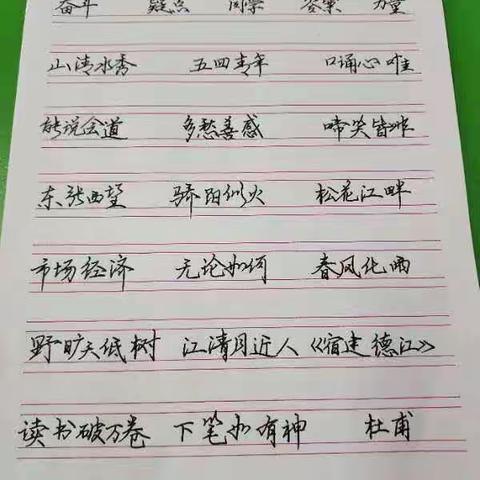 奋斗 疑点 同学 答案 力量
山清水秀 五四青年 口诵心惟
能说会道 多愁善感 啼笑皆非
东张西望 骄阳似火 松花江畔
市场经济 无论如何 春风化雨
野旷天低树 江清月近人《宿建德江》
读书破万卷 下笔如有神 杜甫